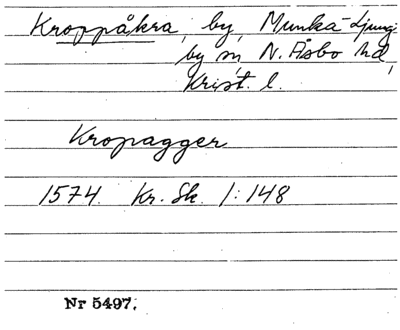 Kroppåkra, by, Munka-Ljung
by sn, N. Åsbo hd,
Krist. l.
Kropagger
1574. Kr. Sk. 1:148
Nr 5497.